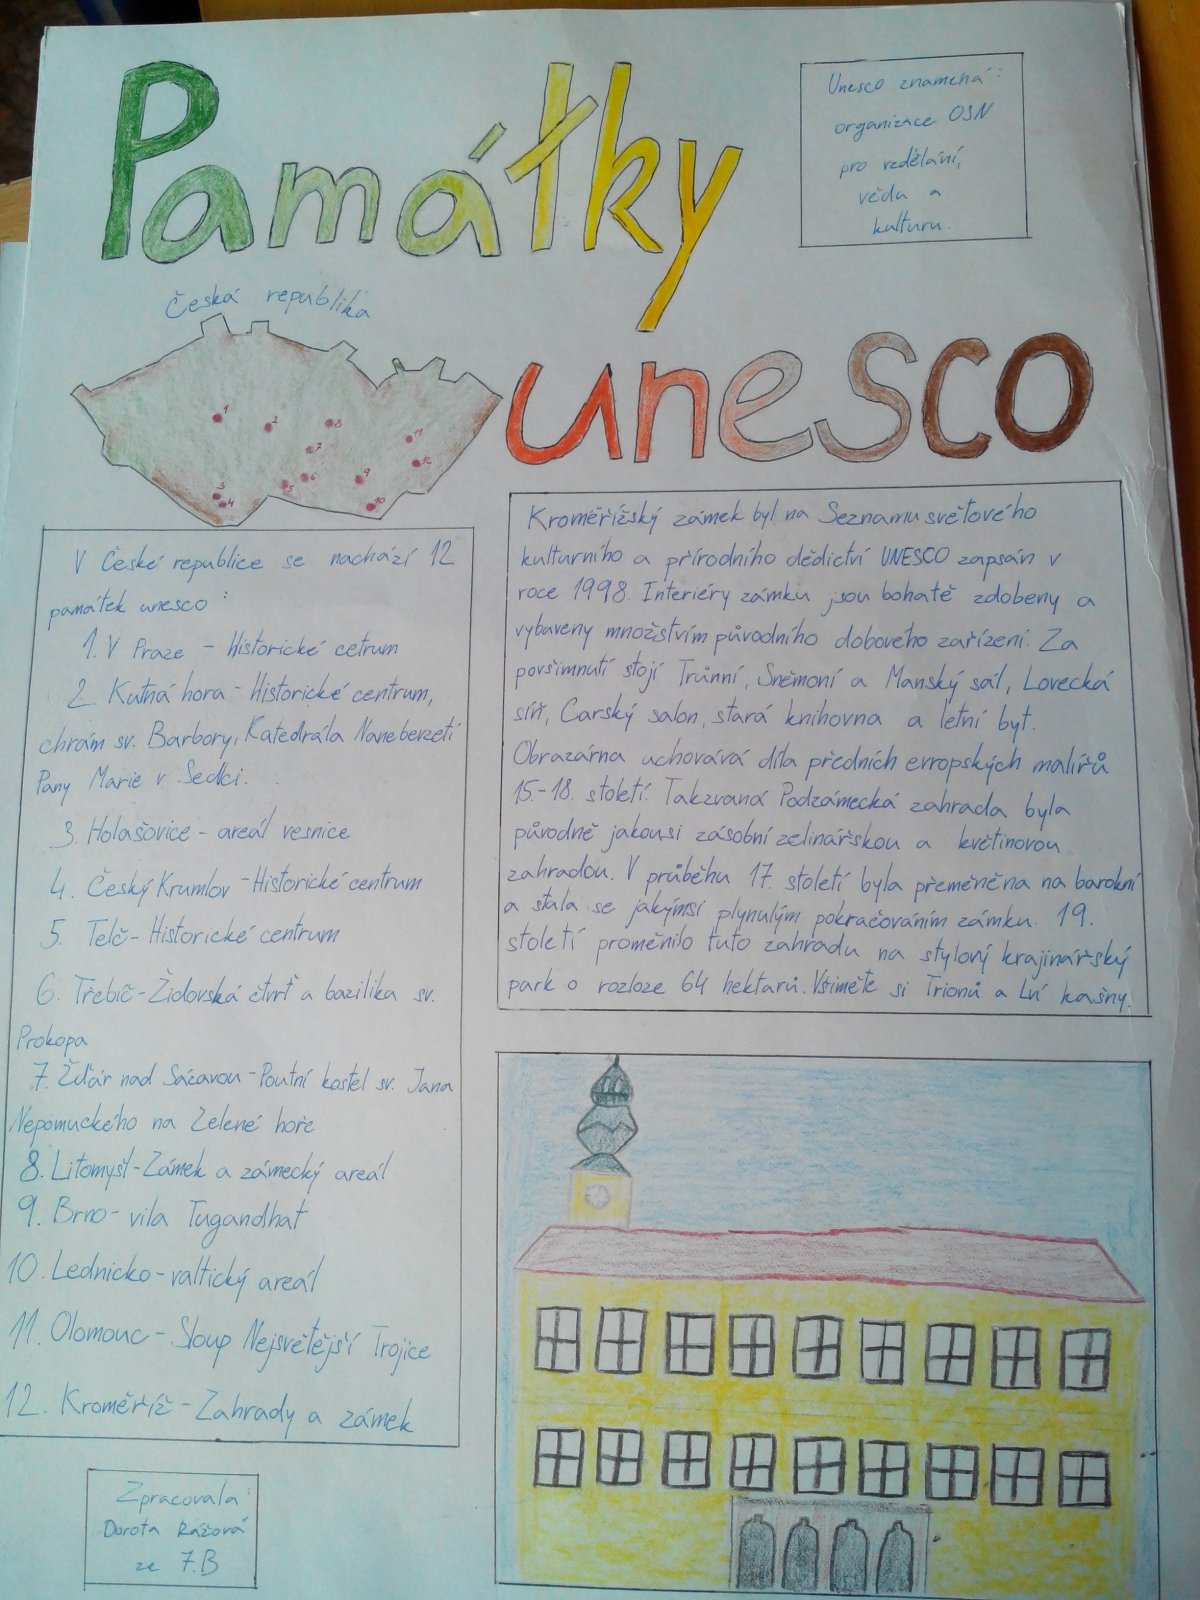 Památky
unesco
Unesco znamená:
organizace OSN
pro vzdělání,
vědu a
kulturu.
Česká republika
1
2
8
7
11
12
6
5
9
3
4
10
V České republice se nachází 12
památek unesco:
1. V Praze - Historické cetrum
2. Kutná hora - Historické centrum,
chrám sv. Barbory, Katedrála Naneberzetí
Pany Marie v Sedlci.
3. Holašovice - areál vesnice
4. Český Krumlov - Historické centrum
5. Telč - Historické centrum
6. Třebíč - Židovská čtvrť a bazilika sv.
Prokopa
7. Žďár nad Sázavou - Poutní kostel sv. Jana
Nepomuckého na Zelené hoře
8. Litomyšl - Zámek a zámecký areál
9. Brno - vila Tugandhat
10. Lednicko - valtický areál
11. Olomouc - Sloup Nejsvětější Trojice
12. Kroměříž - Zahrady a zámek
Kroměřížský zámek byl na Seznamu světového
kulturního a přírodního dědictví UNESCO zapsán v
roce 1998. Interiéry zámku jsou bohatě zdobeny a
vybaveny množstvím původního dobového zařízení. Za
povšimnutí stojí Trůnní, Sněmoní a Manský sál, Lovecká
síň, Carský salon, stará knihovna a letní byt.
Obrazárna uchovává díla předních evropských malířů
15.-18. století. Takzvaná Podzámecká zahrada byla
původně jakousi zásobní zelinářskou a květinovou
zahradou. V průběhu 17. století byla přeměněna na barokní
a stala se jakýmsi plynulým pokračováním zámku. 19.
století proměnilo tuto zahradu na stylový krajinářský
park o rozloze 64 hektarů. Všiměte si Trionů a Lví kašny.
Zpracovala:
Dorota
ze 7.B